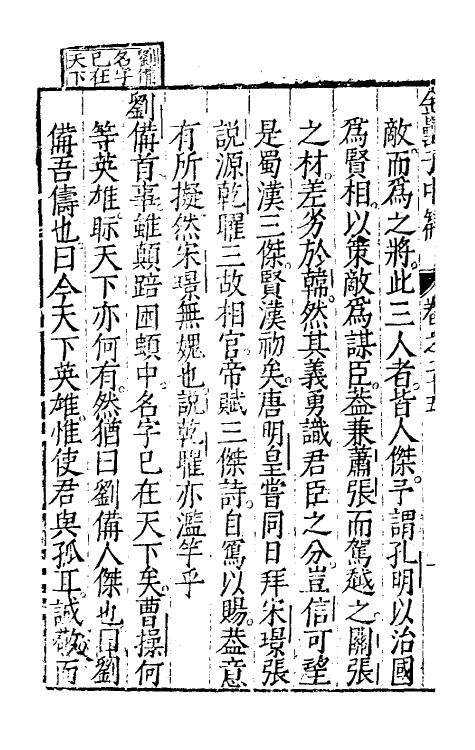 金罍子中編
敵而爲之將。此三人者。皆人傑。予謂孔明以治國
爲賢相。以策敵爲謀臣。葢兼蕭張而駕越之。關張
之材。差劣於韓。然其義勇識君臣之分。豈信可望。
是蜀漢三傑。賢漢初矣。唐明皇嘗同日拜宋璟張
說源乾曜三故相官。帝賦三傑詩。自寫以賜。葢意
有所擬然宋璟無媿也。說乾曜亦濫竽乎
劉備
名字
已在
天下
劉備首事。雖顛踣困頓中。名字已在天下矣。曹操何
等英雄。眎天下亦何有。然猶曰劉備人傑也。曰劉
備吾儔也。曰今天下英雄惟使君與孤耳。誠敬而